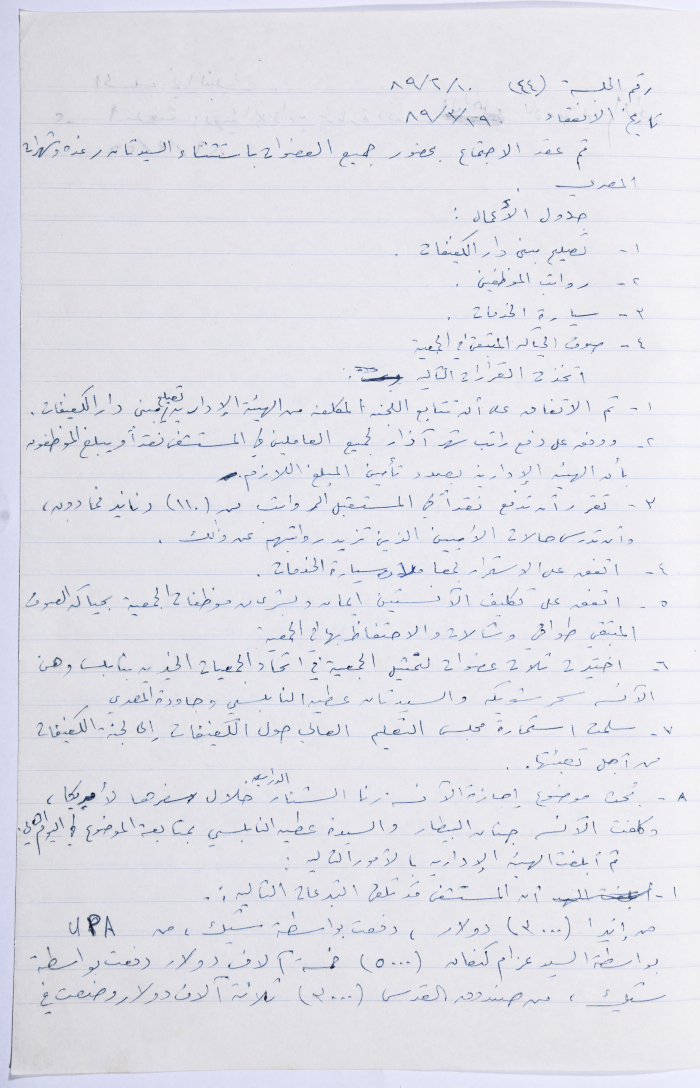 رقم الجلسة (٤٤) ٨٩/٢/١٠
تاريخ الانعقاد ٨٩/٣/١٩
تم عقد الاجتماع بحضور جميع العضوات باستثناء السيدتان رغده وشهرات
المصري .
جدول الأعمال :
١- تصليح مبنى دار الكفيفات .
٢- رواتب الموظفين .
٣- سيارة الخدمات .
٤- صوف الحياكه المتبقي في الجمعية
اتخذت القرارات التالية :
١- تم الاتفاق على أن تتابع اللجنة المكلفة من الهيئة الإدارية تصليح مبنى دار الكفيفات .
٢- ووفق على دفع راتب شهر آذار لجميع العاملين في المستشفى نقداً ويبلغ الموظفون
بأن الهيئة الإدارية بصدد تأمين المبلغ اللازم .
٣- تقرر أن تدفع نقداً في المستقبل الرواتب من (١١٠) دنانير فما دون ،
وأن تدرس حالات الذين تزيد رواتبهم عن ذلك .
٤- اتفق على الاستمرار بمعاملات سيارة الخدمات .
٥- اتفق على تكليف الآنستين ايمان وبشرى من موظفات الجمعية بحياكة الصوف
المتبقي طواقي وشالات والاحتفاظ بها في الجمعية
٦- اختيرت ثلاث عضوات لتمثيل الجمعية في اتحاد الجمعيات الخيرية بنابلس وهن
الآنسه سحر شويكه والسيدتان عطيه النابلسي وحاودة المصري
٧- سلمت استمارة مجلس التعليم العالي حول الكفيفات إلى لجنة الكفيفات
من أجل تعبئتها .
٨- بحث موضوع إجازة الآنسه رنا الشنار الدراسيه خلال سفرها لأمريكا ،
وكلفت الآنسه جنان البيطار والسيدة عطيه النابلسي بمتابعة الموضوع في اليوم
ثم أبلغت الهيئة الإدارية بالأمور التالية :
١- أن المستشفى قد تلقى التبرعات التالية :
من إندا (٣٠٠٠) دولار ، دفعت بواسطة شيك ، من UPA
بواسطة السيد عزام كنعان (٥٠٠٠) خمسة آلاف دولار دفعت بواسطة
شيك ، من صندوق القدس (٣٠٠٠) ثلاثة آلاف دولار وضعت في